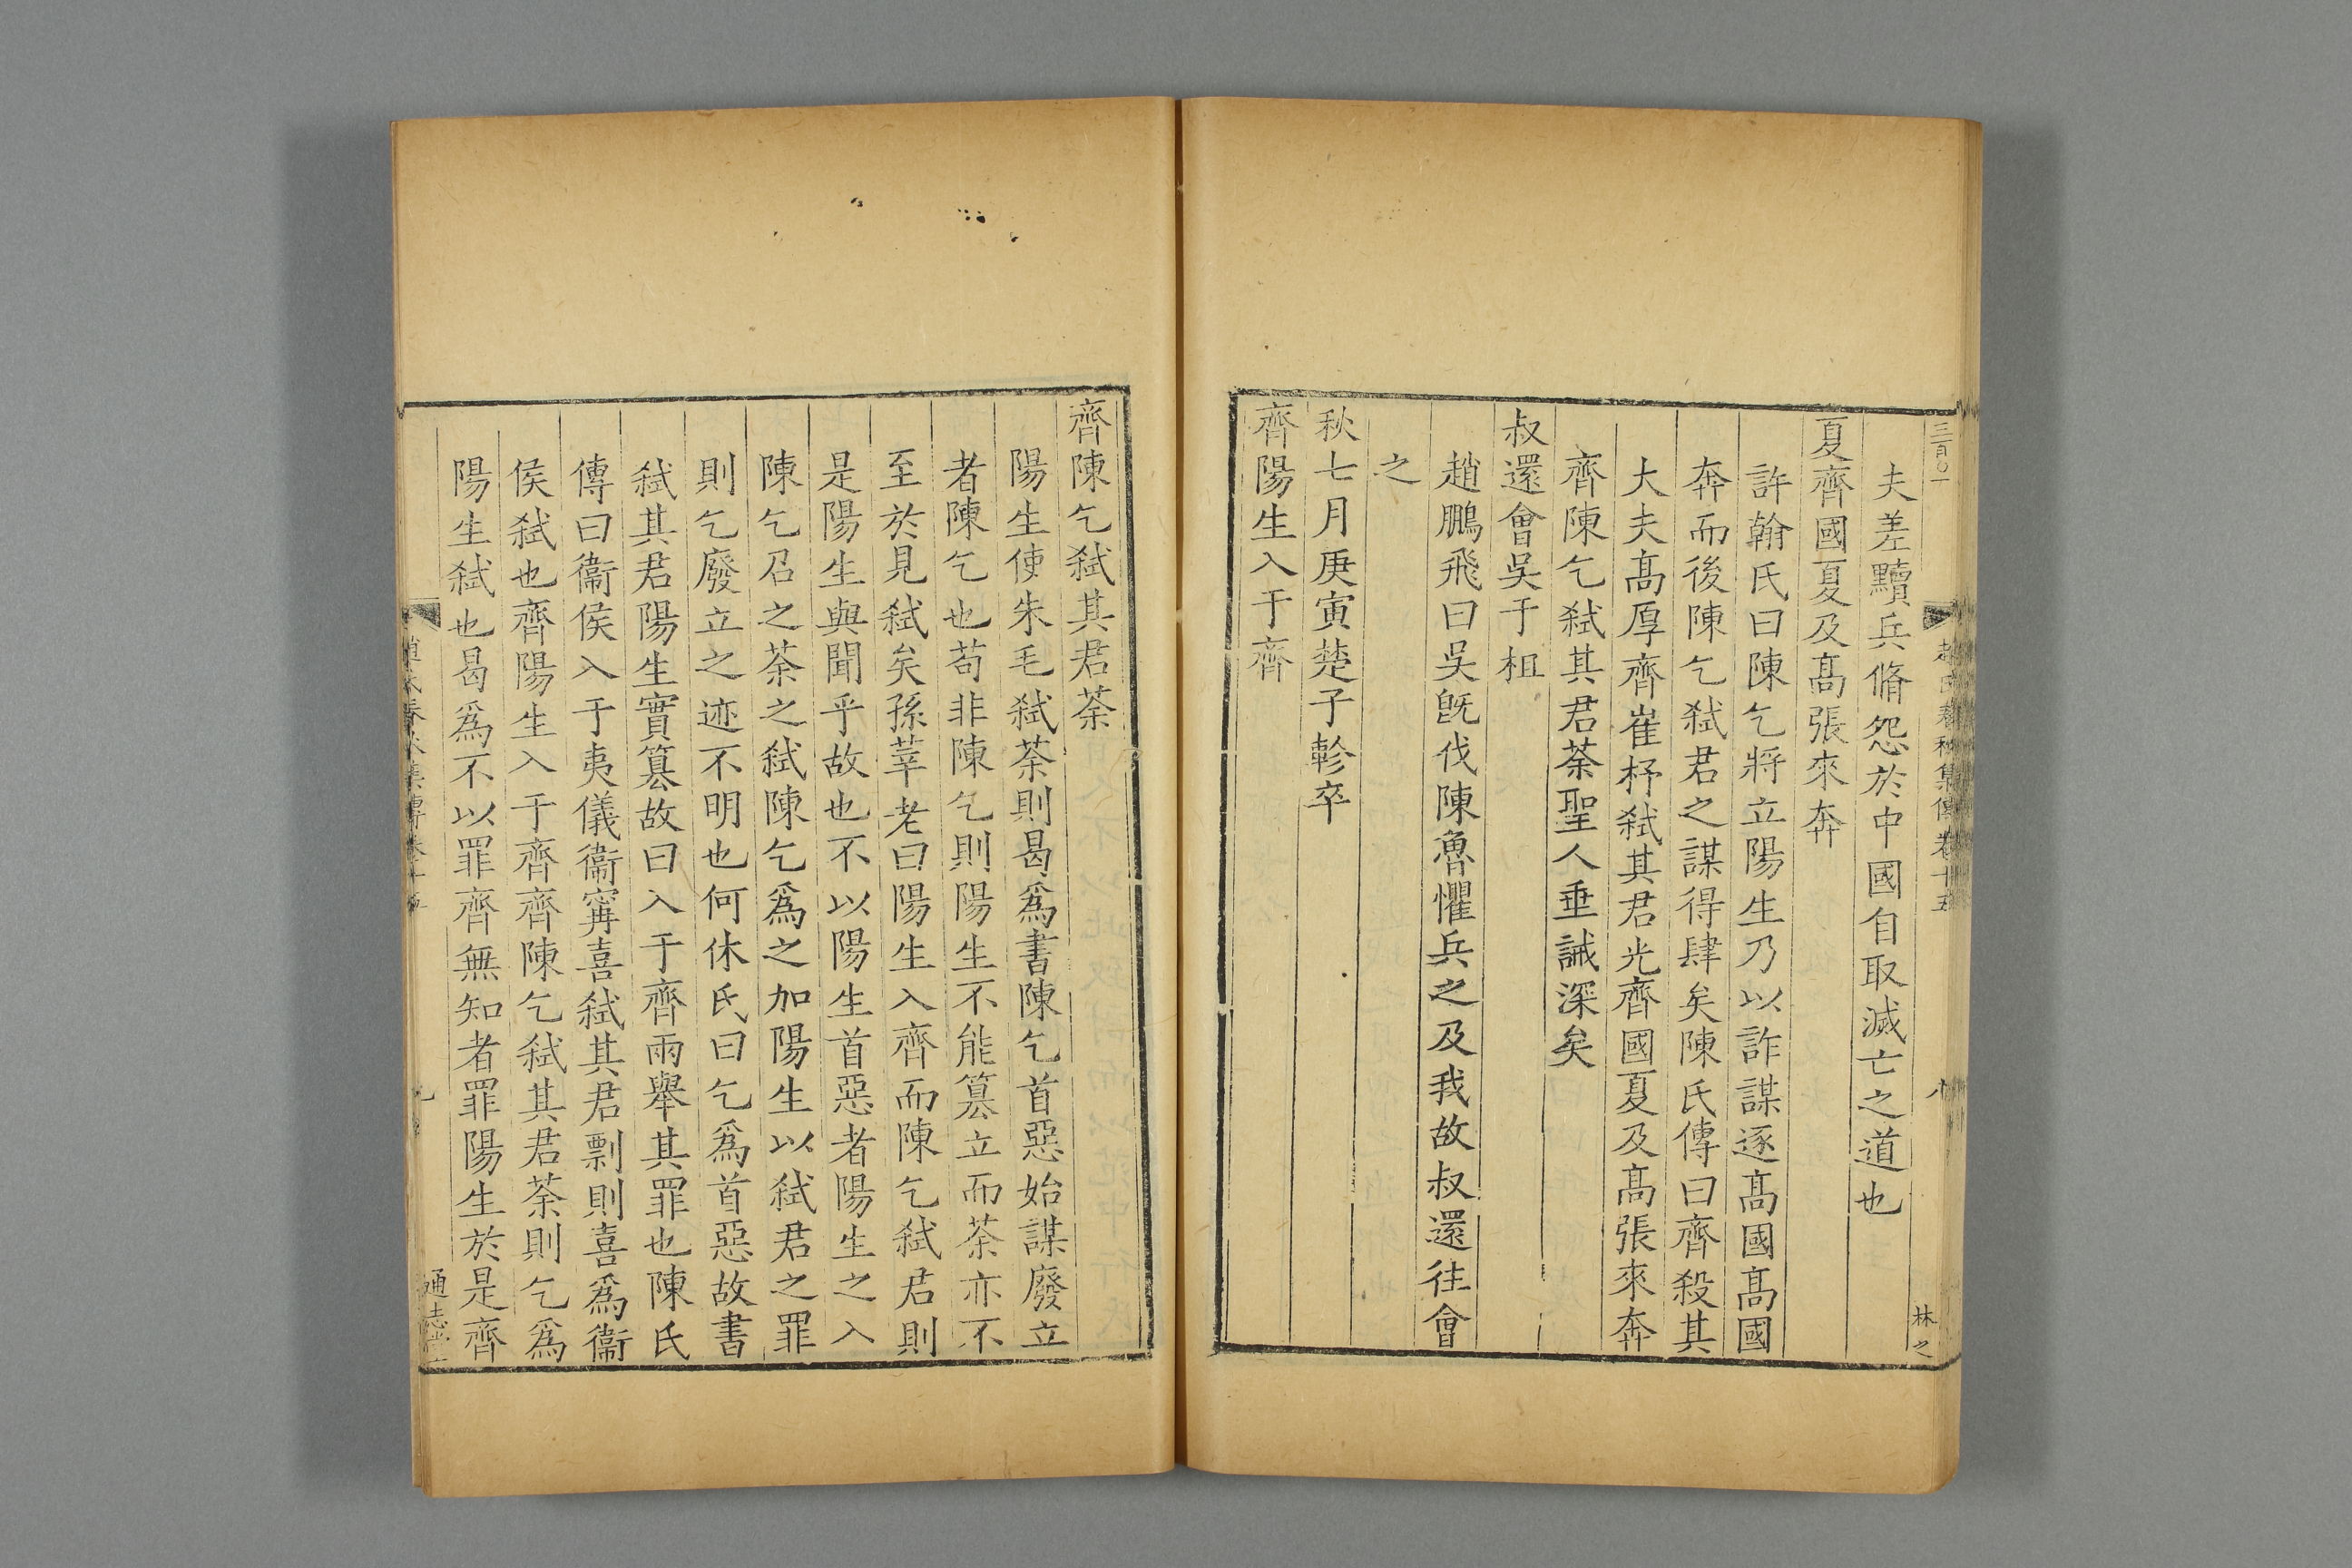 三百〇一
趙氏春秋集傳卷十五
八
林之
夫差黷兵脩怨於中國自取滅亡之道也
夏齊國夏及髙張來奔
許翰氏曰陳乞將立陽生乃以詐謀逐髙國髙國
奔而後陳乞弑君之謀得肆矣陳氏傳曰齊殺其
大夫髙厚齊崔杼弑其君光齊國夏及髙張來奔
齊陳乞弑其君荼聖人垂誡深矣
叔還會吳于柤
趙鵬飛曰吳旣伐陳魯懼兵之及我故叔還往會
之
秋七月庚寅楚子軫卒
齊陽生入于齊
齊陳乞弑其君荼
陽生使朱毛弑荼則曷爲書陳乞首惡始謀廢立
者陳乞也苟非陳乞則陽生不能簒立而荼亦不
至於見弑矣孫莘老曰陽生入齊而陳乞弑君則
是陽生與聞乎故也不以陽生首惡者陽生之入
陳乞召之荼之弑陳乞爲之加陽生以弑君之罪
則乞廢立之迹不明也何休氏曰乞爲首惡故書
弑其君陽生實簒故曰入于齊兩舉其罪也陳氏
傳曰衞侯入于夷儀衞甯喜弑其君剽則喜爲衞
侯弑也齊陽生入于齊齊陳乞弑其君荼則乞爲
陽生弑也曷爲不以罪齊無知者罪陽生於是齊
趙氏春秋集傳卷十五
九
通志堂